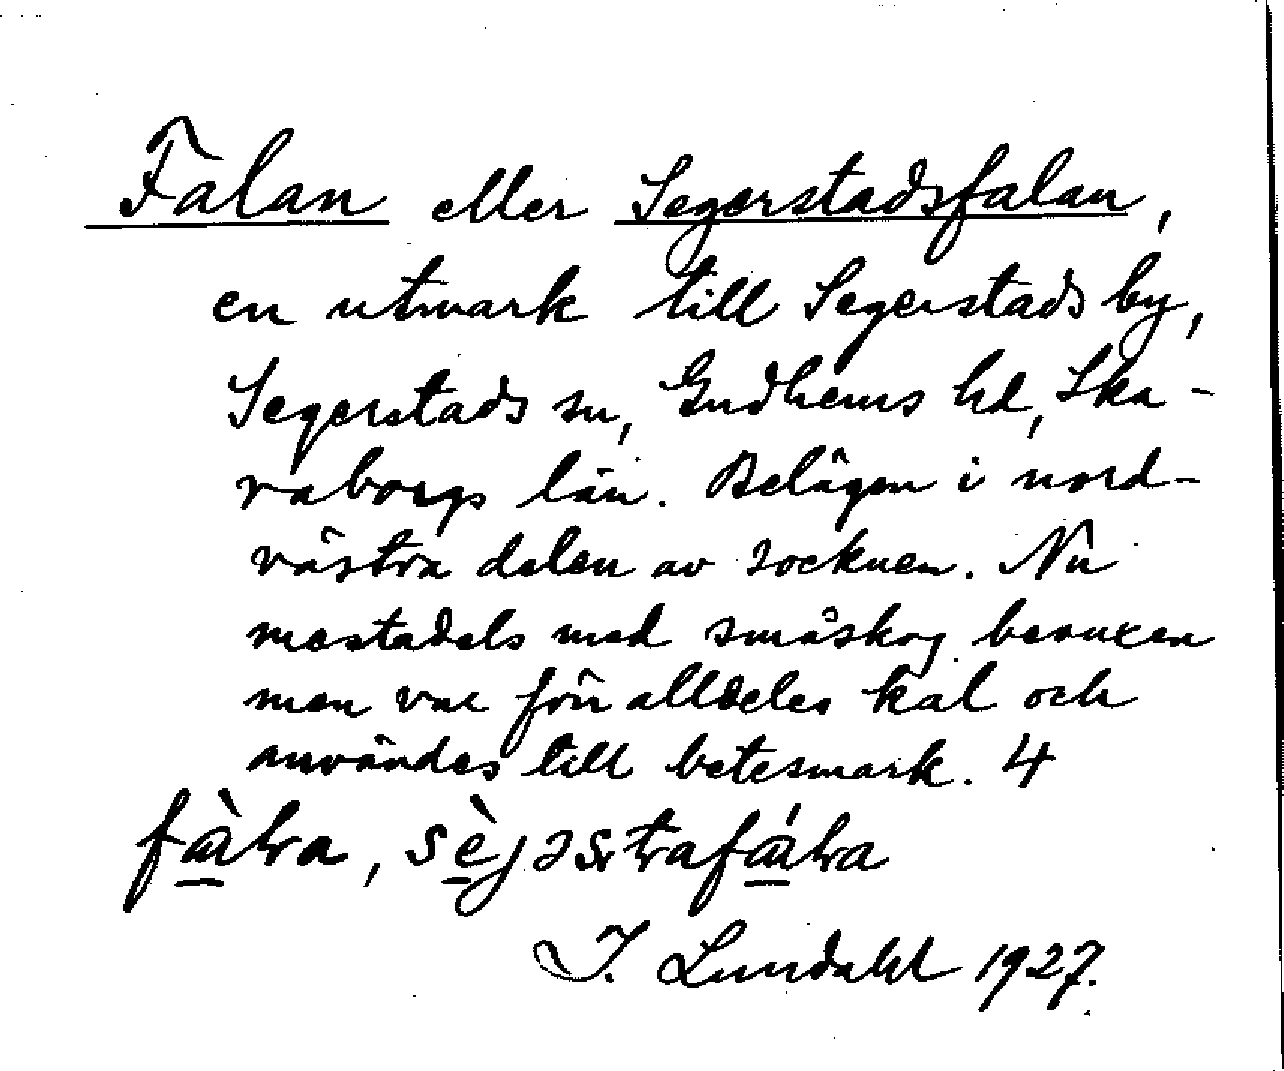 Falan eller Segerstadsfalan,
en utmark till Segerstads by,
Segerstads sn, Gudhems hd, Ska-
raborgs län. Belägen i nord-
västra delen av socknen. Nu
mestadels med småskog bevuxen
men var förr alldeles kal och
användes till betesmark. 4
J. Lundahl 1927.